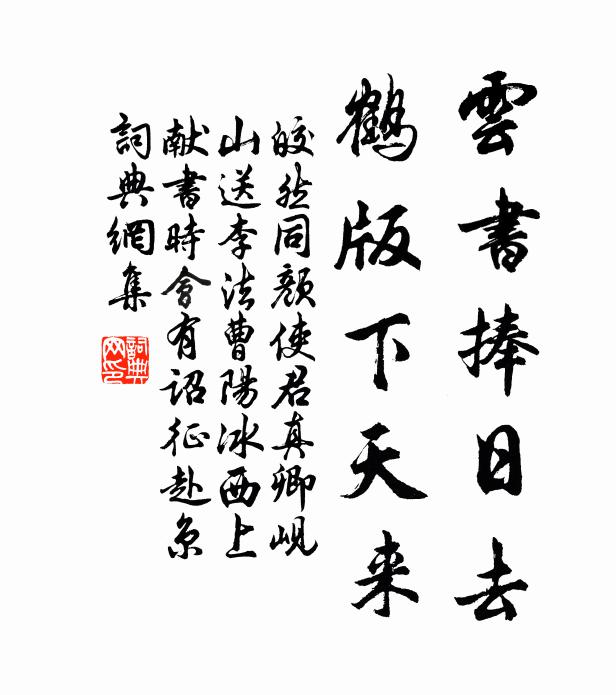 雲書捧日去
鶴版下天来
皎然同顏使君真卿峴
山送李法曹陽冰西上
献書時會有詔征赴京
詞典網集
詞典網印